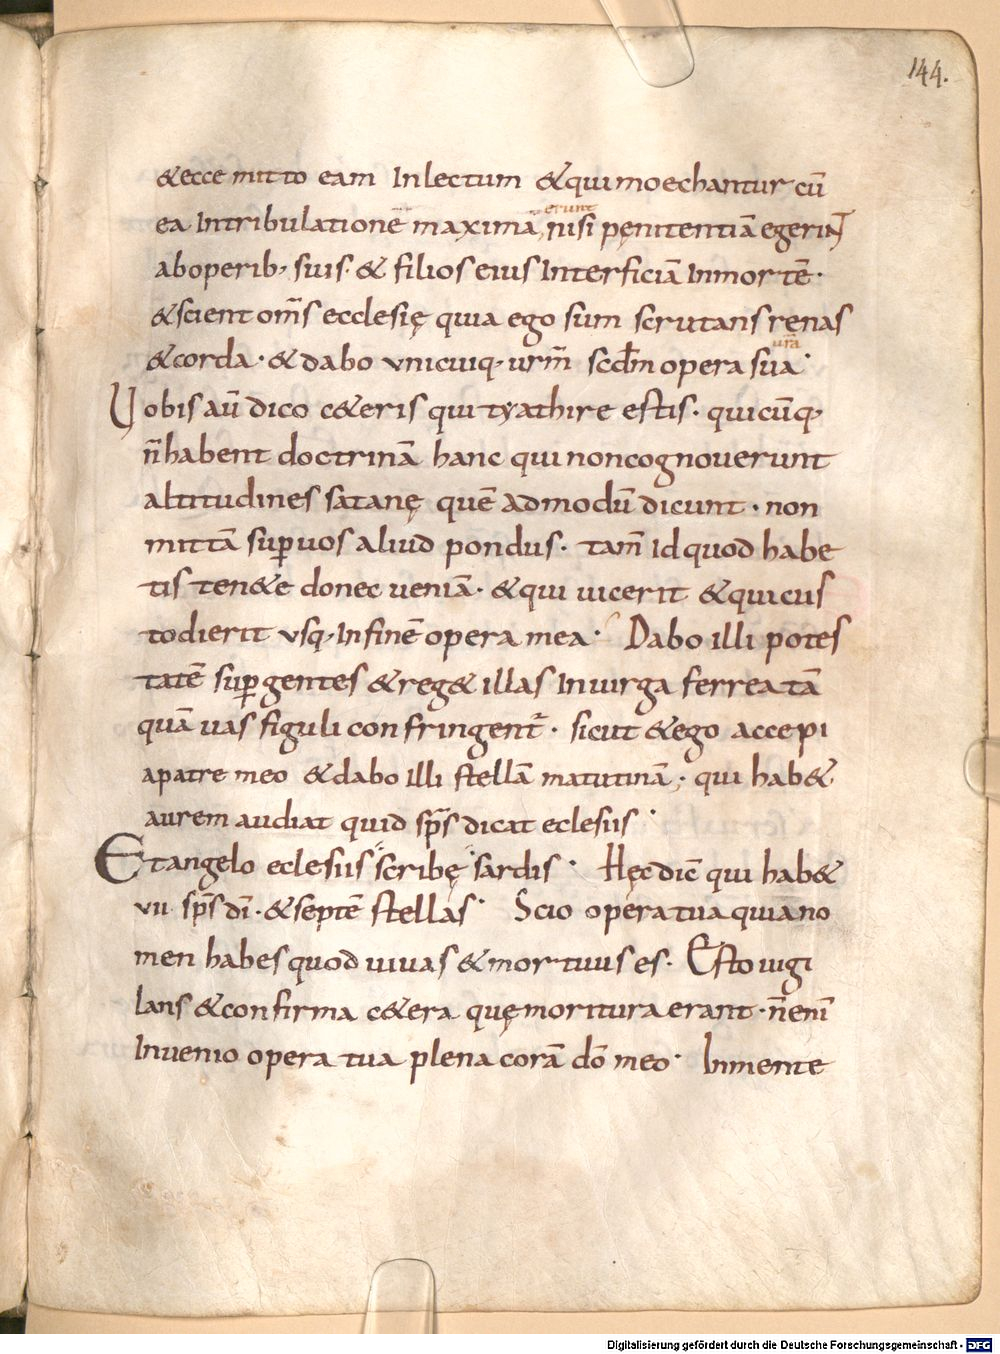 144.
&ecce mitto eam Inlectum &quimoechantur cū
erunt
ea Intribulationē maximā, nisi pęnitentiā egerinT
aboperib; suis· & filios eius Interficiā Inmortē·
&scient om̄s ecclesię quia ego sum scrutans renas
ura
&corda· &dabo vnicuiq; urm̄ scdm̄ opera sua·
Vobis aū dico c&eris qui tyathire estis· quicūq;
n̄habent doctrinā hanc qui noncognoverunt
altitudines satanę quē admodū dicunt· non
mittā suꝑ uos aliud pondus· tam̄ Id quod habe
tis ten&e donec ueniā· &qui uicerit &quicus
todierit vsq; Infinē opera mea· Dabo illi potes
tatē suꝑ gentes &reg& illas Inuirga ferrea tā
quā uas figuli confringent̄· sicut &ego accepi
apatre meo &dabo illi stellā matutinā; qui hab&
aurem audiat quid sp̄s dicat eclesiis·
Etangelo eclesiis scribę sardis· Hęc dic̄ qui hab&
vii sp̄s dī· &septē stellas· Scio opera tua quia no
men habes quod uiuas &mortuus es· Esto uigi
lans &confirma c&era quę moritura erant· n̄ enī
Inuenio opera tua plena corā dō meo· Inmente
Digitalisierung gefördert durch die Deutsche Forschungsgemeinschaft - DFG